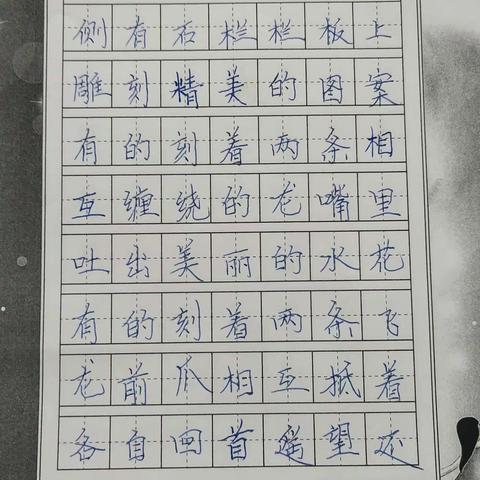 侧有石栏栏板上
雕刻精美的图案
有的刻着两条相
互缠绕的龙嘴里
吐出美丽的水花
有的刻着两条飞
龙前爪相互抵着
各自回首遥望还